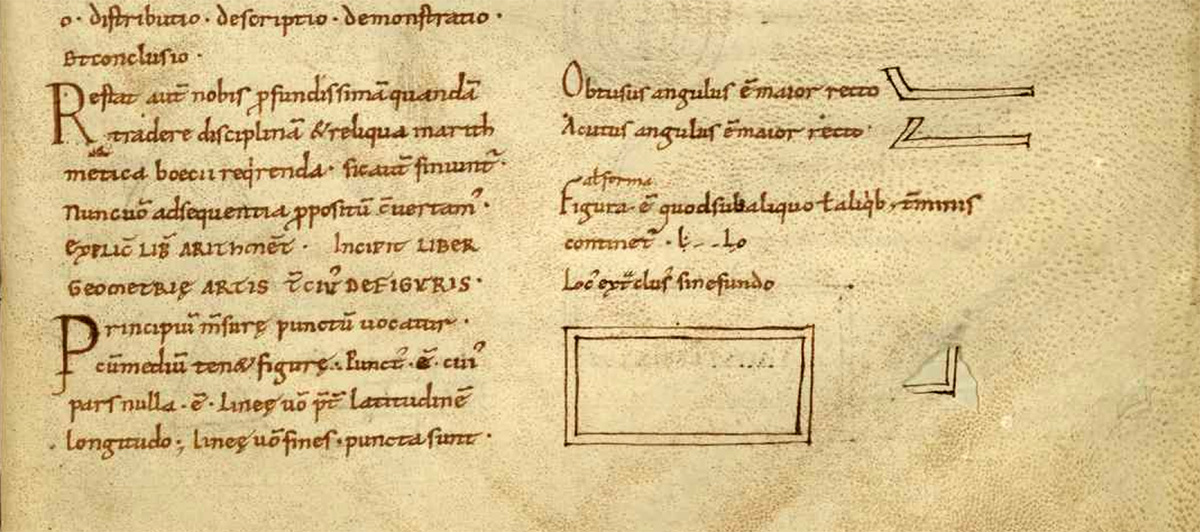 o · distributio · descriptio · demonstratio ·
Et conclusio ·
Restat aut̄ nobis ꝓfundissimā quandā
tradere disciplinā & reliqua in arith
metica boecii req̇renda · sicaut̄ finiunt᷑ ·
Nunc uō ad sequentia ꝓpositū c̄uertam᾽ ·
EXPLIC̄ LIB̄ ARITHMET̄ · INCIPIT LIBER
GEOMETRIĘ ARTIS T̄CIU᾽ DE FIGURIS ·
Principiū m̄surę punctū uocatur ·
cū mediū ten& figurę · Punct᾽ · ē · cui᾽
pars nulla · ē · Lineę uō p̄t̄ latitudinē
longitudo ; lineę uō fines · puncta sunt ·
Obtusus angulus ē maior recto
Acutus angulus ē maior recto ·
al̄ forma
Figura · ē quod sub aliquo ł aliq̇b, t̄minis
continet᷑ ·
Loc᾽ ext̄clus᾽ sine fundo